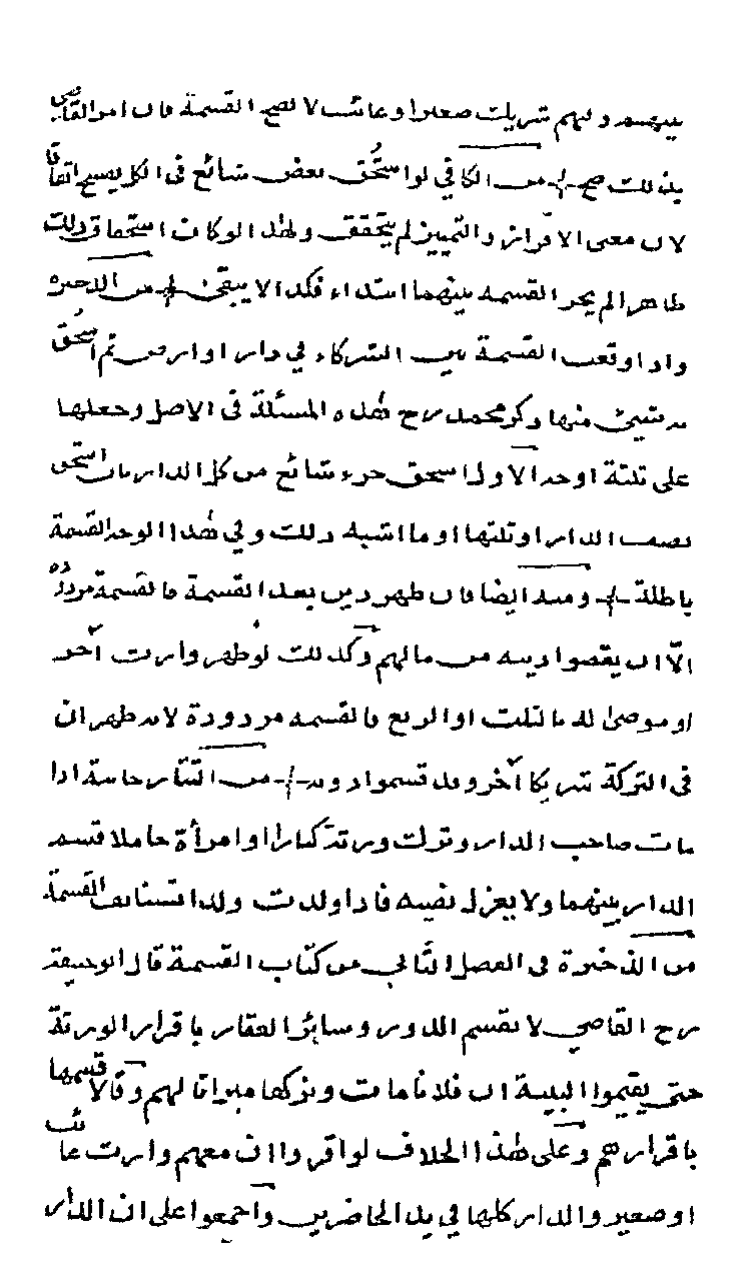 بينهم وفيهم شريك صغير او غائب لا تصح القسمة فان امر القاضي
بذلك صح من الكافي لو استحق بعض شائع في الكل يفسح اتفاقا
لان معنى الافراز والتمييز لم يتحقق ولهذا لو كان استحقاق ذلك
ظاهرا لم يجز القسمة بينهما ابتداء فكذا لا يبقى من الذخيرة
واذا وقعت القسمة بين الشركاء في دار او ارض ثم استحق
شيئ منها ذكر محمد رح هذه المسئلة في الاصل وجعلها
على ثلثة اوجه الاول استحق جزء شائع من كل الدار بان استحق
نصف الدار او ثلثها او ما اشبه ذلك وفي هذا الوجه القسمة
باطلة ومنه ايضا فان ظهر دين بعد القسمة فالقسمة مردودة
الا ان يقضوا دينه من مالهم وكذلك لو ظهر وارث آخر
او موصى له بالثلث او الربع فالقسمة مردودة لانه ظهر ان
في التركة شريكا آخر وقد قسموا دونه من اذا
مات صاحب الدار وترك ورثة كبارا وامرأة حاملا قسم
الدار بينهما ولا يعزل نصيبه فاذا ولدت ولدا تستانف القسمة
من الذخيرة في الفصل الثاني من كتاب القسمة قال ابو حنيفة
رح القاضي لا يقسم الدور وسائر العقار باقرار الورثة
حتى يقيموا البينة ان فلانا مات وتركها ميراثا لهم وقالا قسمها
باقرارهم وعلى هذا الخلاف لو اقروا ان معهم وارث غائب
او صغير والدار كلها في يد الحاضرين واجمعوا على ان الدار